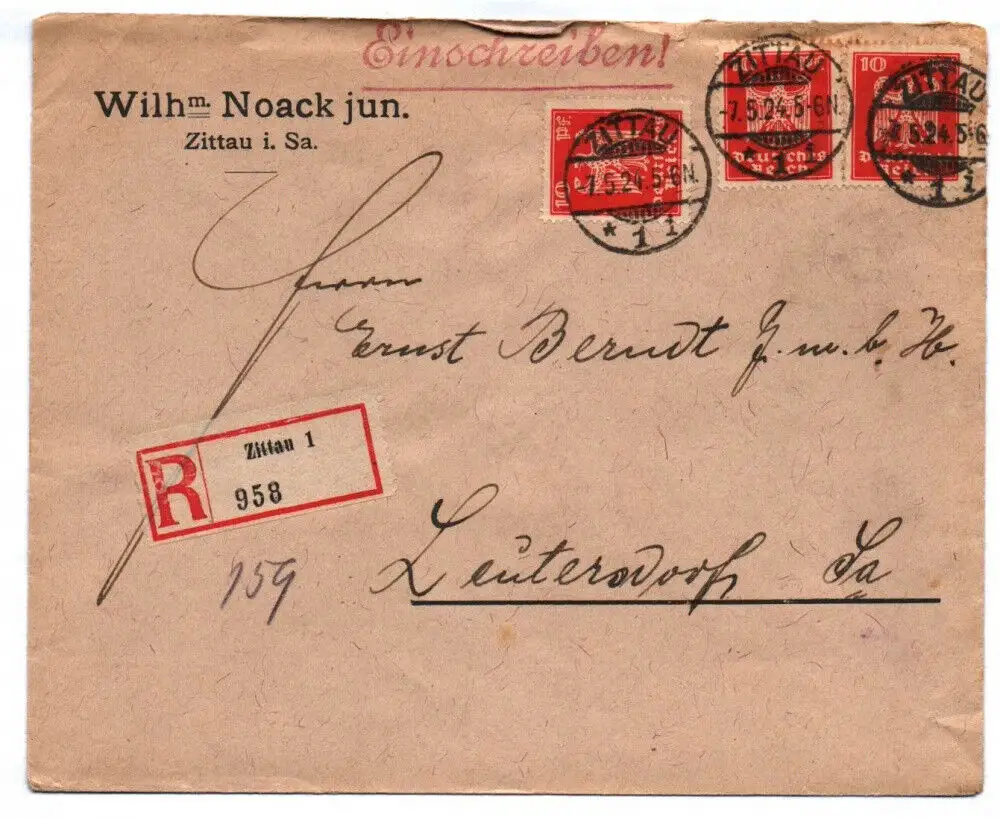 Einschreiben!
Wilhm. Noack jun.
Zittau i. Sa.
10 Pf.
Deutsches Reich
ZITTAU
-7.5.24.5-6N.
* 1 i
Deutsches
Reich
ZITTAU
-7.5.24.5-6N.
* 1 i
10
ZITTAU
5.24.5-6
* 1 i
Herrn
Ernst Berndt G.m.b.H.
Zittau 1
R
958
159
Leutersdorf Sa